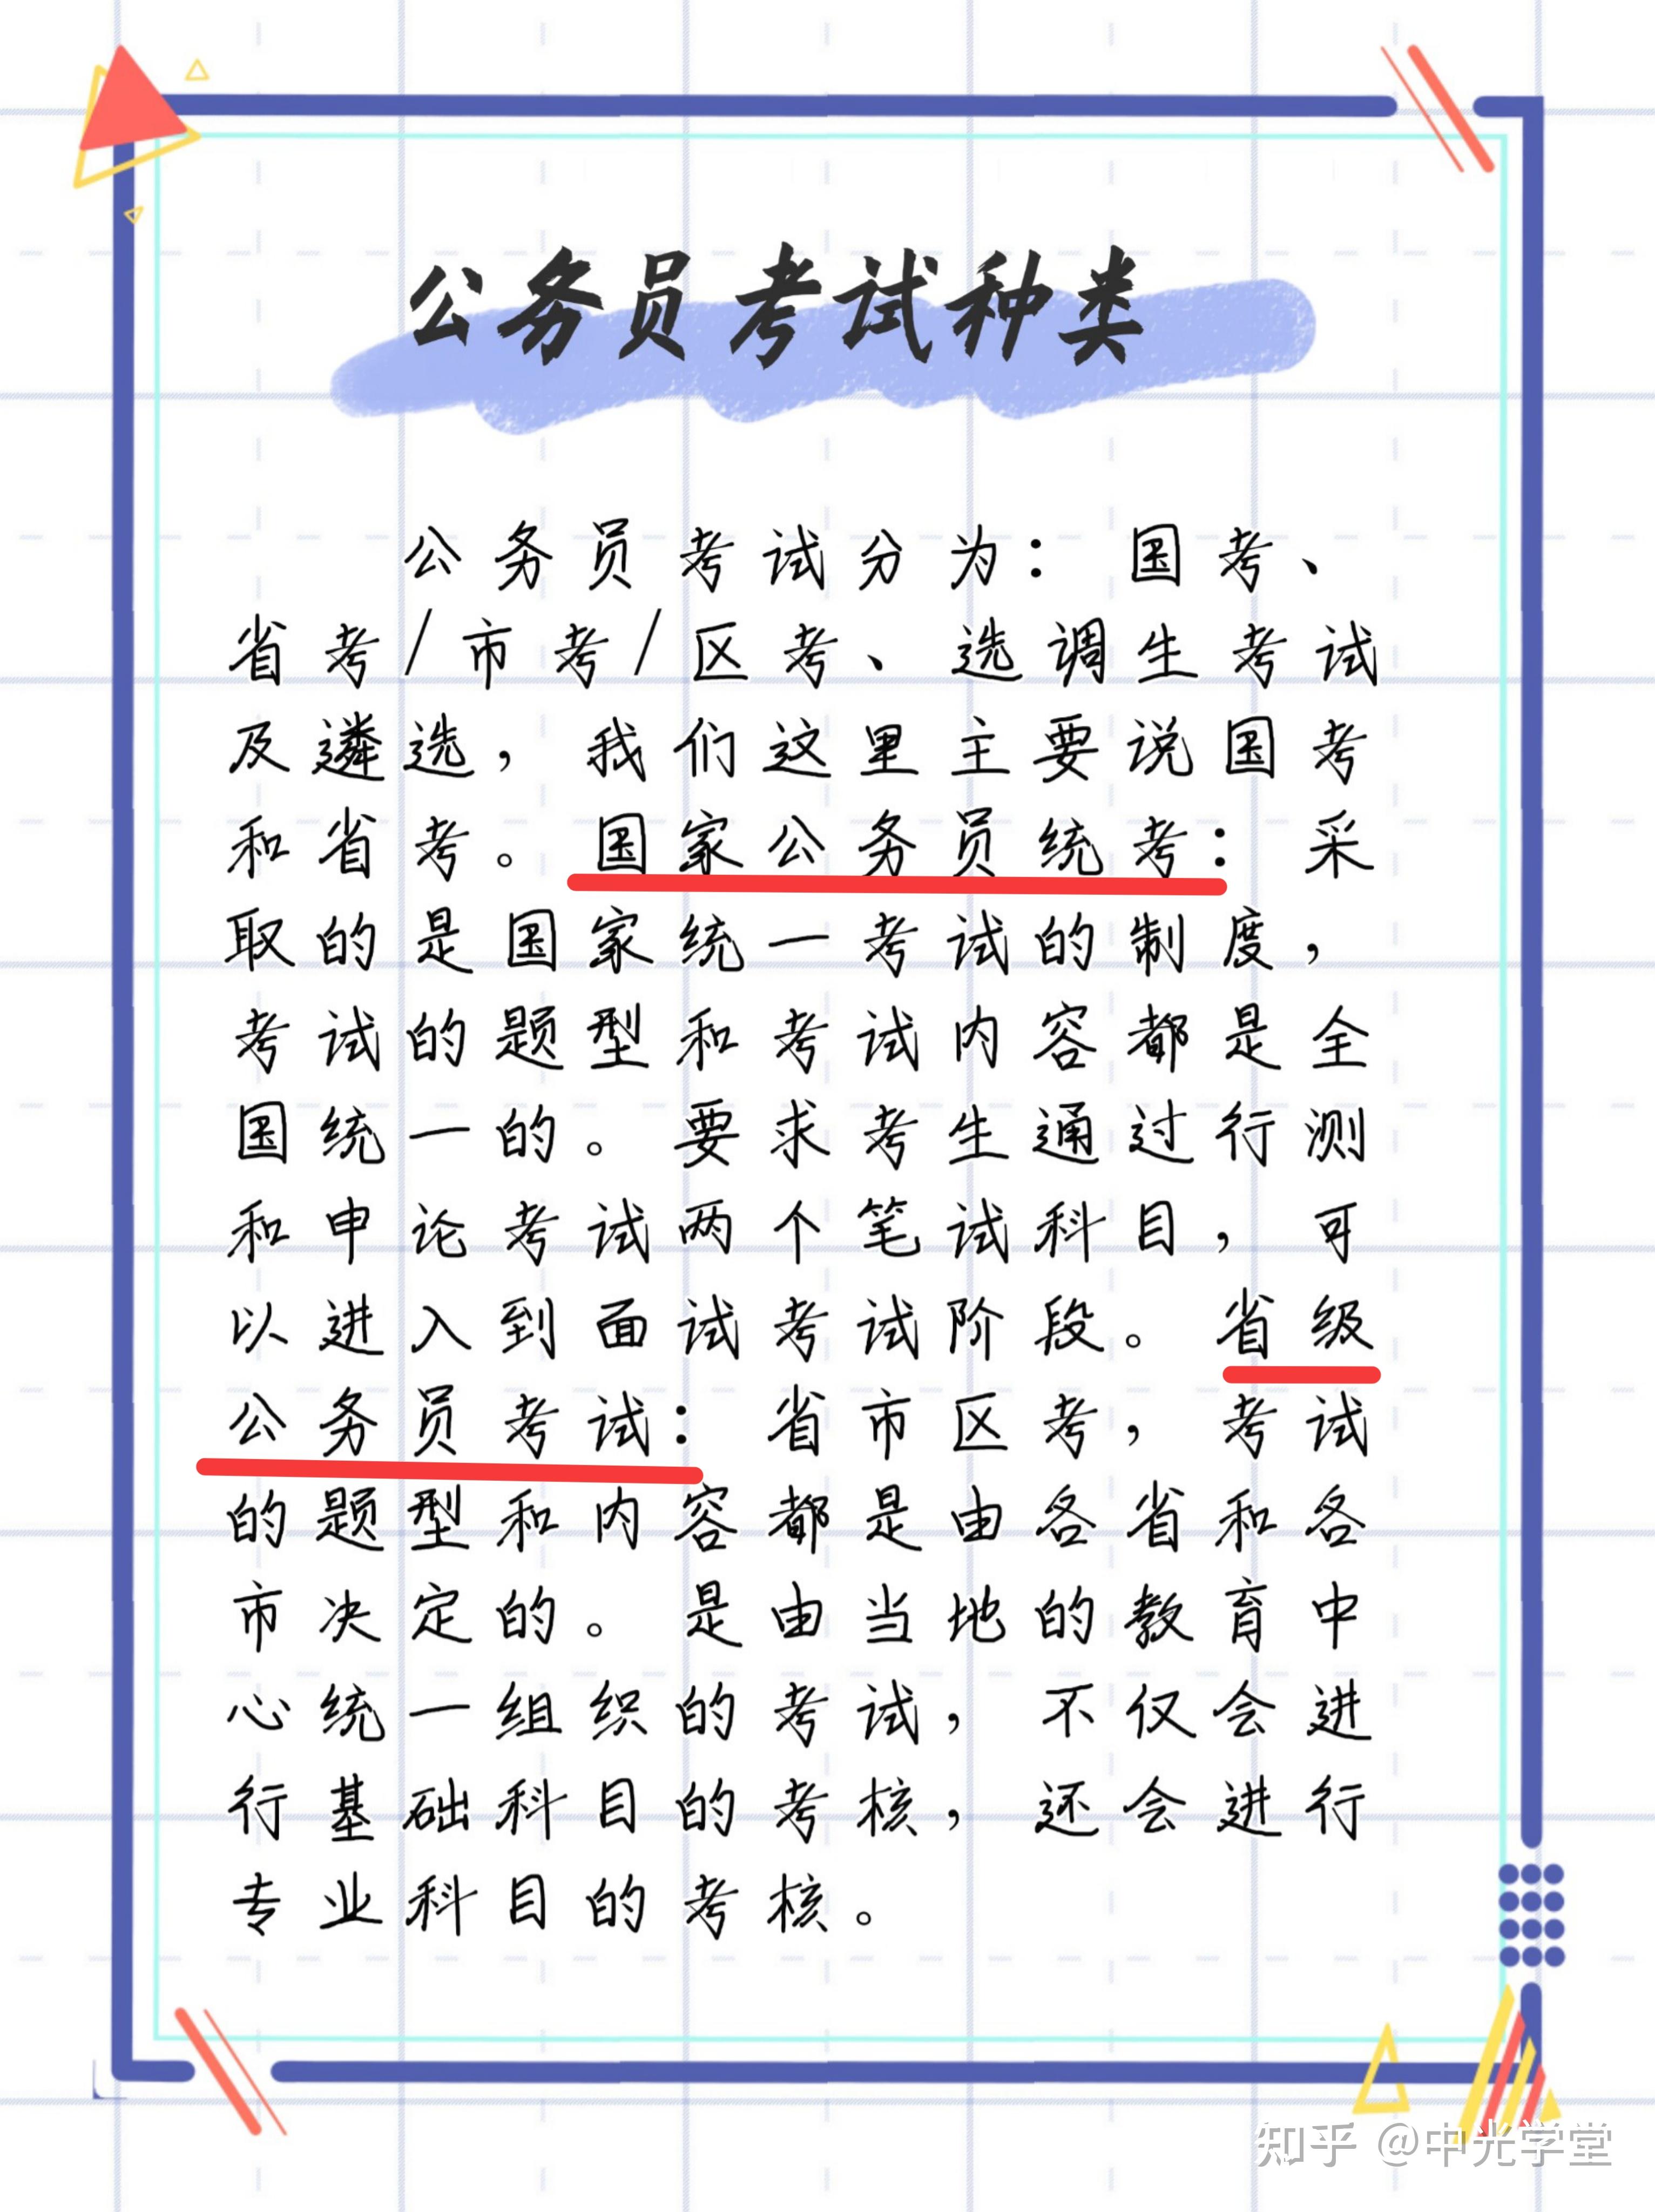 公务员考试种类
公务员考试分为：国考、
省考/市考/区考、选调生考试
及遴选，我们这里主要说国考
和省考。国家公务员统考：采
取的是国家统一考试的制度，
考试的题型和考试内容都是全
国统一的。要求考生通过行测
和申论考试两个笔试科目，可
以进入到面试考试阶段。省级
公务员考试：省市区考，考试
的题型和内容都是由各省和各
市决定的。是由当地的教育中
心统一组织的考试，不仅会进
行基础科目的考核，还会进行
专业科目的考核。
知乎 @中光学堂